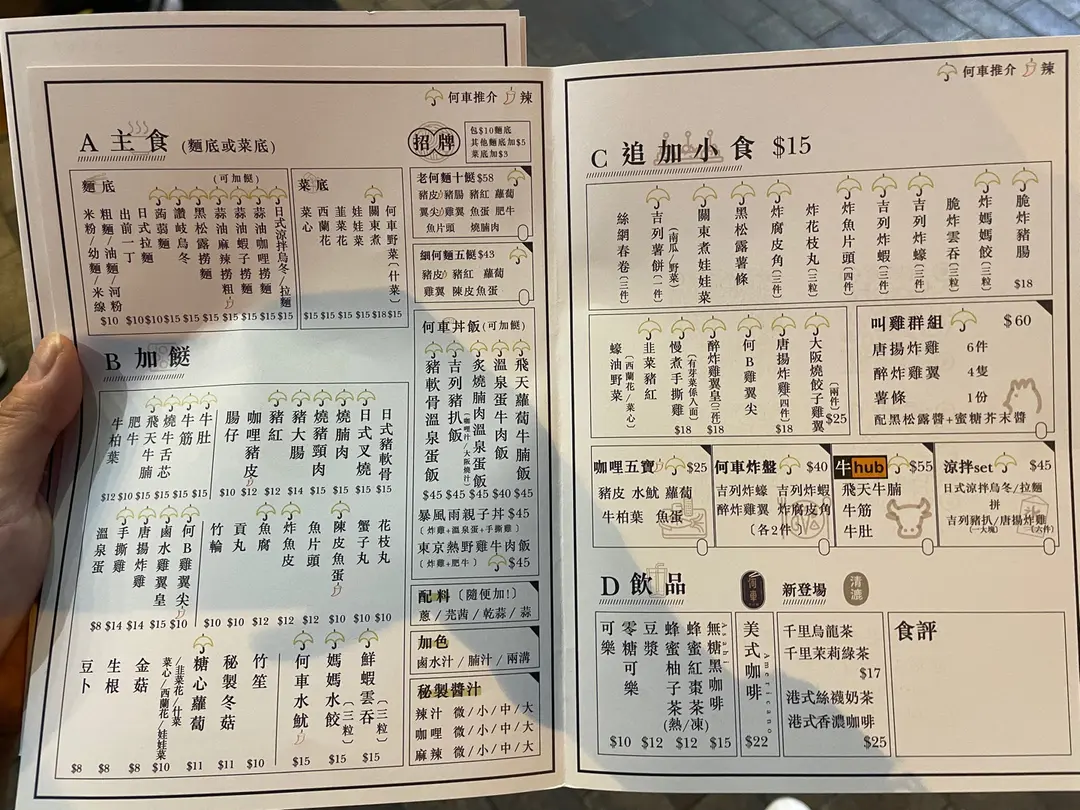 何車推介 辣
A 主食 (麵底或菜底)
招牌
包$10麵底
其他麵底加$5
菜底加$3
麵底
(可加餸)
米粉/幼麵/米線
粗麵/油麵/河粉
出前一丁
日式拉麵
蒟蒻麵
讚岐烏冬
黑松露撈麵
蒜油麻辣撈粗
蒜油蝦子撈麵
蒜油咖哩撈麵
日式涼拌烏冬/拉麵
$10 $10 $10 $15 $15 $15 $15 $15 $15 $15
菜底
菜心
西蘭花
韮菜花
娃娃菜
關東煮
何車野菜(什菜)
$15 $15 $15 $15 $18 $15
老何麵十餸 $58
豬皮 豬腸 豬紅 蘿蔔
翼尖 雞翼 魚蛋 肥牛
魚片頭 燒腩肉
細何麵五餸 $43
豬皮 豬紅 蘿蔔
雞翼 陳皮魚蛋
B 加餸
牛柏葉
肥牛
飛天牛腩
燒牛舌芯
牛筋
牛肚
腸仔
咖哩豬皮
豬紅
豬大腸
燒豬頸肉
燒腩肉
日式叉燒
日式豬軟骨
$12 $10 $15 $15 $15 $15 $10 $12 $12 $12 $15 $15 $15 $15
溫泉蛋
手撕雞
唐揚炸雞
鹵水雞翼皇
何B雞翼尖
竹輪
貢丸
魚腐
炸魚皮
魚片頭
陳皮魚蛋
蟹子丸
花枝丸
$8 $14 $14 $15 $10 $10 $10 $10 $10 $10 $12 $10 $10
豆卜
生根
金菇
菜心/西蘭花/娃娃菜
/韭菜花/什菜
糖心蘿蔔
秘製冬菇
竹笙
何車水魷
媽媽水餃(三粒)
鮮蝦雲吞(三粒)
$8 $8 $8 $10 $11 $11 $12 $15 $15 $15
何車丼飯(可加餸)
豬軟骨溫泉蛋飯
吉列豬扒飯
(咖哩汁/大阪燒汁)
炙燒腩肉溫泉蛋飯
溫泉蛋牛肉飯
飛天蘿蔔牛腩飯
$45 $45 $45 $40 $45
暴風雨親子丼 $45
(炸雞+溫泉蛋+手撕雞)
東京熱野雞牛肉飯
(炸雞+肥牛) $45
配料 (隨便加!)
蔥/芫茜/乾蒜/蒜
加色
鹵水汁/腩汁/兩溝
秘製醬汁
辣汁 微/小/中/大
咖哩 微/小/中/大
麻辣 微/小/中/大
何車推介 辣
C 追加小食 $15
絲網春卷(三件)
吉列薯餅(一件)
(南瓜/野菜)
關東煮娃娃菜
黑松露薯條
炸腐皮角(三件)
炸花枝丸(三粒)
炸魚片頭(四件)
吉列炸蝦(三件)
吉列炸蠔(三件)
脆炸雲吞(三粒)
炸媽媽餃(三粒)
脆炸豬腸
$18
蠔油野菜
(西蘭花/菜心)
韭菜豬紅
慢煮手撕雞
(有芽菜係入面)
$18
醉炸雞翼皇(三件)
$18
何B雞翼尖
唐揚炸雞(四件)
$18
大阪燒餃子雞翼
(兩件)
$25
叫雞群組 $60
唐揚炸雞 6件
醉炸雞翼 4隻
薯條 1份
配黑松露醬+蜜糖芥末醬
咖哩五寶 $25
豬皮 水魷 蘿蔔
牛柏葉 魚蛋
何車炸盤 $40
吉列炸蠔 吉列炸蝦
醉炸雞翼 炸腐皮角
(各2件)
牛hub $55
飛天牛腩
牛筋
牛肚
涼拌set $45
日式涼拌烏冬/拉麵
拼
吉列豬扒/唐揚炸雞
(一大塊) (六件)
D 飲品
何車
新登場
清濃
可樂
零糖可樂
豆漿
蜂蜜柚子茶
蜂蜜紅棗茶
(熱/凍)
無糖黑咖啡
Asahi
$10 $12 $12 $15
美式咖啡
Americano
$22
千里烏龍茶
千里茉莉綠茶
$17
港式絲襪奶茶
港式香濃咖啡
$25
食評